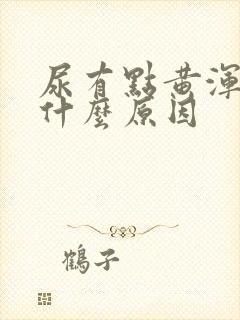 尿有點黃渾
什麼原因
鶴子